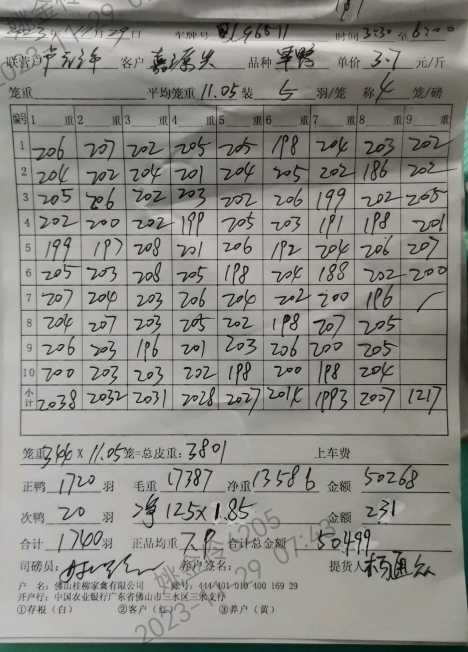 3月29日 车牌号 时间 3:30 至 6:00
联营户 客户 品种 单价 3.7 元/斤
笼重 平均笼重 11.05 装 5 羽/笼 称 4 笼/磅
编号 1 重 2 重 3 重 4 重 5 重 6 重 7 重 8 重 9 重
1 206 207 202 205 205 198 204 203 202
2 204 202 204 201 204 205 202 186 202
3 205 206 202 203 202 206 199 202 205
4 202 200 202 199 205 203 191 198 201
5 199 197 208 201 206 192 204 206 207
6 205 203 208 205 198 204 188 202 200
7 207 204 203 206 204 202 200 196 /
8 204 207 203 205 202 198 207 205
9 206 203 196 201 203 206 200 205
10 200 203 203 202 198 200 198 204
小计 2038 2032 2031 2028 2027 2014 1993 2007 1217
笼重 344 × 11.05 笼=总皮重: 3801 上车费
正鸭 1720 羽 毛重 17387 净重 13586 金额 50268
次鸭 20 羽 净 125×1.85 金额 231
合计 1740 羽 正品均重 7.9 合计总金额 50499
司磅员: 客户签名: 提货人
户 名: 佛山桂柳家禽有限公司 账号: 444 401 010 400 169 29
开户行: 中国农业银行广东省佛山市三水区三水支行
①存根(白) ②客户(红) ③养户(黄)